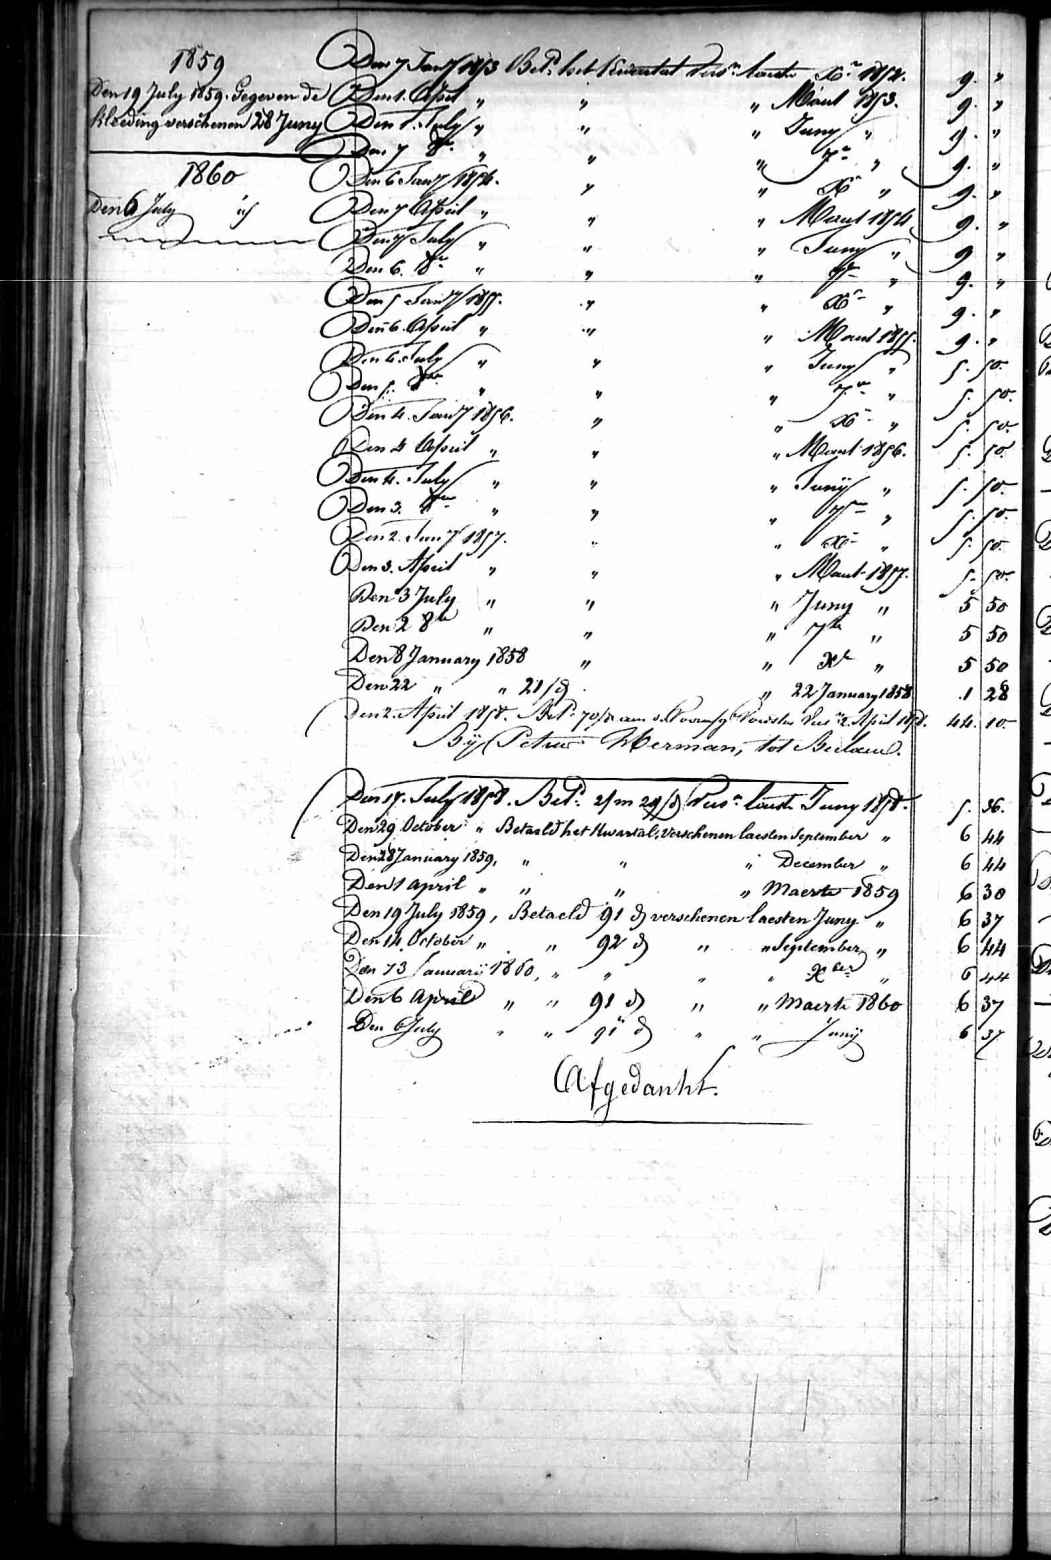 1859
Den 19 July 1859. Gegeven de
kleeding verschenen 28 Juny
1860
Den 6 July id
Den 7 Jan^y 1853 Bet^d. het kwartal Vers^n. laeste X^r 1852. 9. "
Den 1. April " " " Maert 1853. 9. "
Den 1. July " " " Juny " 9. "
Den 7 8^r. " " " 7^r " 9. "
Den 6 Jan^y 1854. " " X^r " 9. "
Den 7 April " " " Maert 1854 9. "
Den 7 July " " " Juny " 9 "
Den 6. 8^r " " " 7^r " 9. "
Den 5 Jan^y 1855. " " X^r " 9. "
Den 6. April " " " Maert 1855. 9. "
Den 6. July " " " Juny " 5. 50.
Den 5. 8^br " " " 7^r " 5. 50.
Den 4. Jan^y 1856. " " X^r " 5. 50.
Den 4 April " " " Maert 1856. 5. 50.
Den 4. July " " " Juny " 5. 50.
Den 3. 8^br " " " 7^r " 5. 50.
Den 2. Jan^y 1857. " " X^r " 5. 50.
Den 3. April " " " Maert 1857. 5. 50.
Den 3 July " " " Juny " 5 50
Den 2 8^br " " " 7^br " 5 50
Den 8 January 1858 " " X^r " 5 50
Den 22 " " 21/d " 22 January 1858 1 28
Den 2. April 1858. Bet^d. 70/d aen Vers^n 2. April 1858. 44. 10.
By Petrus Herman, tot
Den 17. July 1858. Bet^d. 2/m 29/d Vers^n. laeste Juny 1858. 5. 36.
Den 29 October " Betaeld het Kwartal, verschenen laesten September " 6 44
Den 28 January 1859, " " " December " 6 44
Den 1 april " " " " Maerte 1859 6 30
Den 19 July 1859, Betaeld 91 d verschenen laesten Juny " 6 37
Den 14 October " " 92 d " " September " 6 44
Den 13 Januarij 1860, " " " " X^ber " 6 44
Den 6 April " " 91 d " " Maerte 1860 6 37
Den 6 July " " 91 d " " Junij 6 37
Afgedankt.